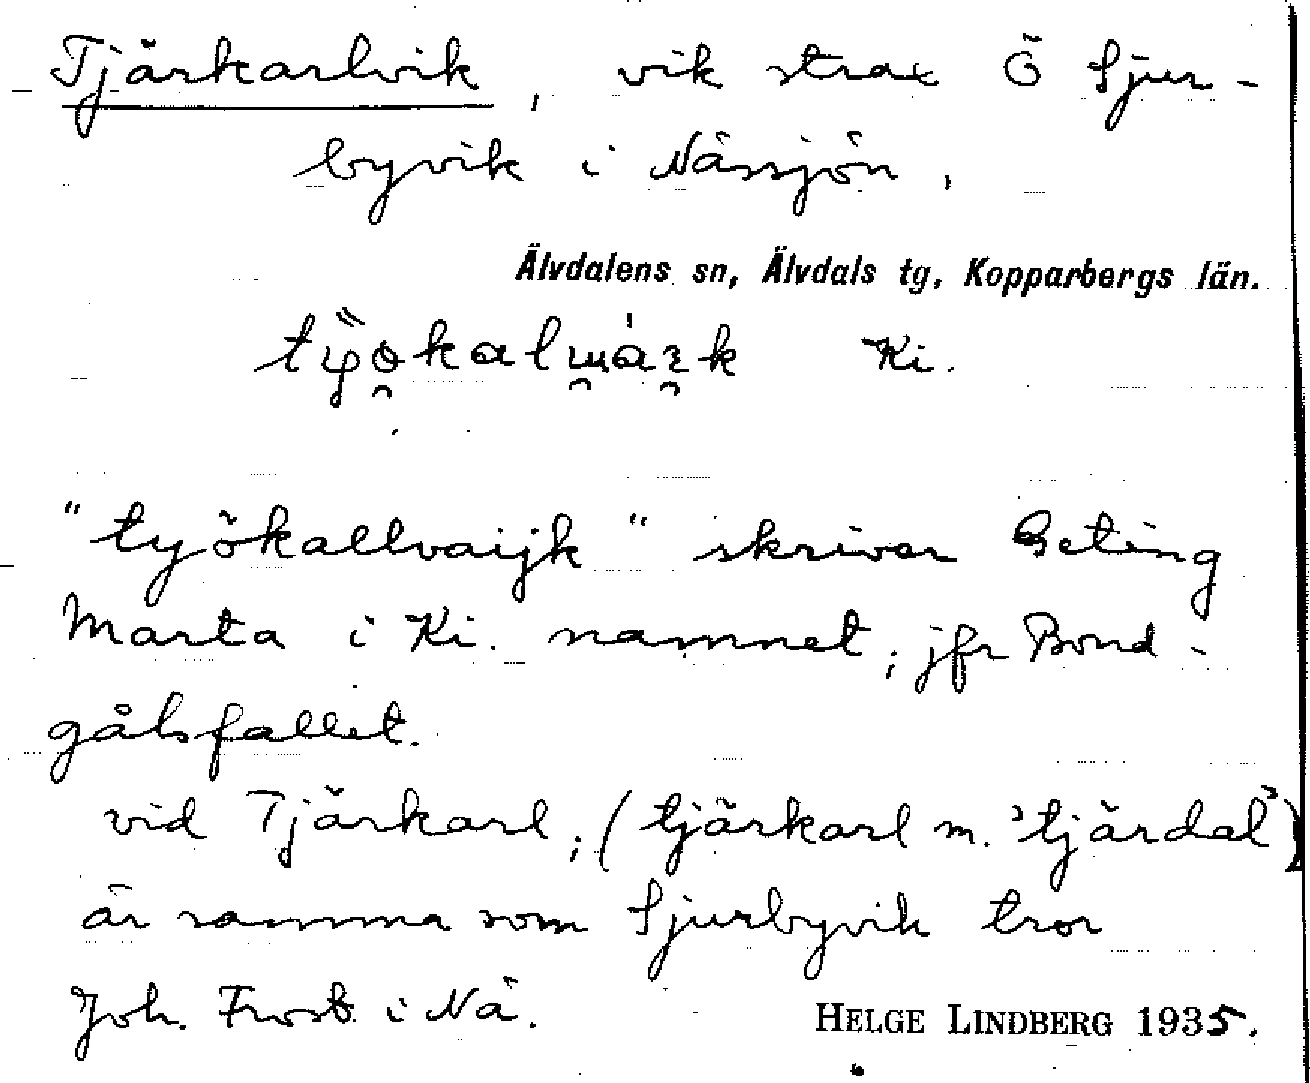 Tjärkarlvik, vik strax Ö Sjur-
byvik i Nässjön.
Älvdalens sn, Älvdals tg, Kopparbergs län.
Ki.
"työkallvaijk" skriver Beting
Marta i Ki. namnet; jfr Bond-
gålsfallet.
vid Tjärkarl; (tjärkarl m. 'tjärdal')
är samma som Sjurbyvik tror
Joh. Frost i Nä.
HELGE LINDBERG 1935.